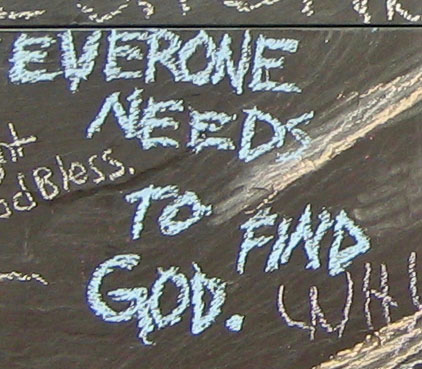 EVERONE
NEEDS
TO FIND
GOD.
od Bless.
WHY